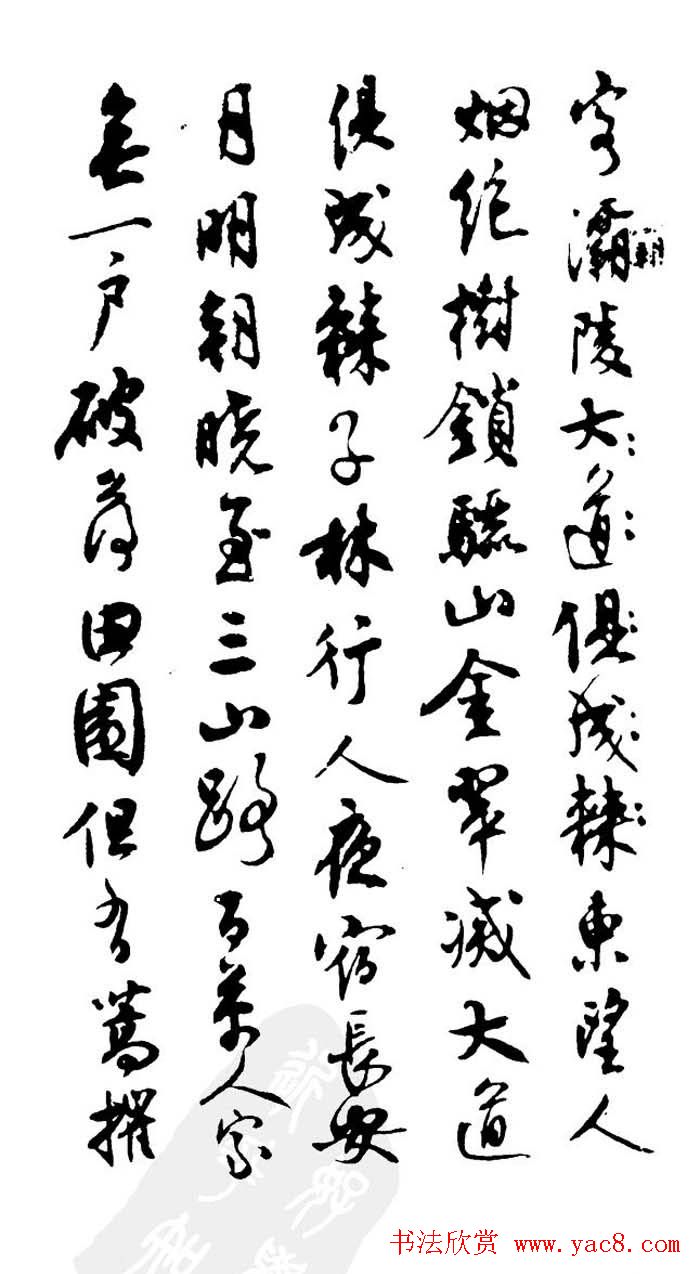 客灞陵大道俱成棘東望人
烟絕樹鎖驪山金翠滅大道
俱成棘子林行人夜宿長安
月明朝曉至三山路百萬人家
無一户破落田園但有蒿摧
书法欣赏 www.yac8.com